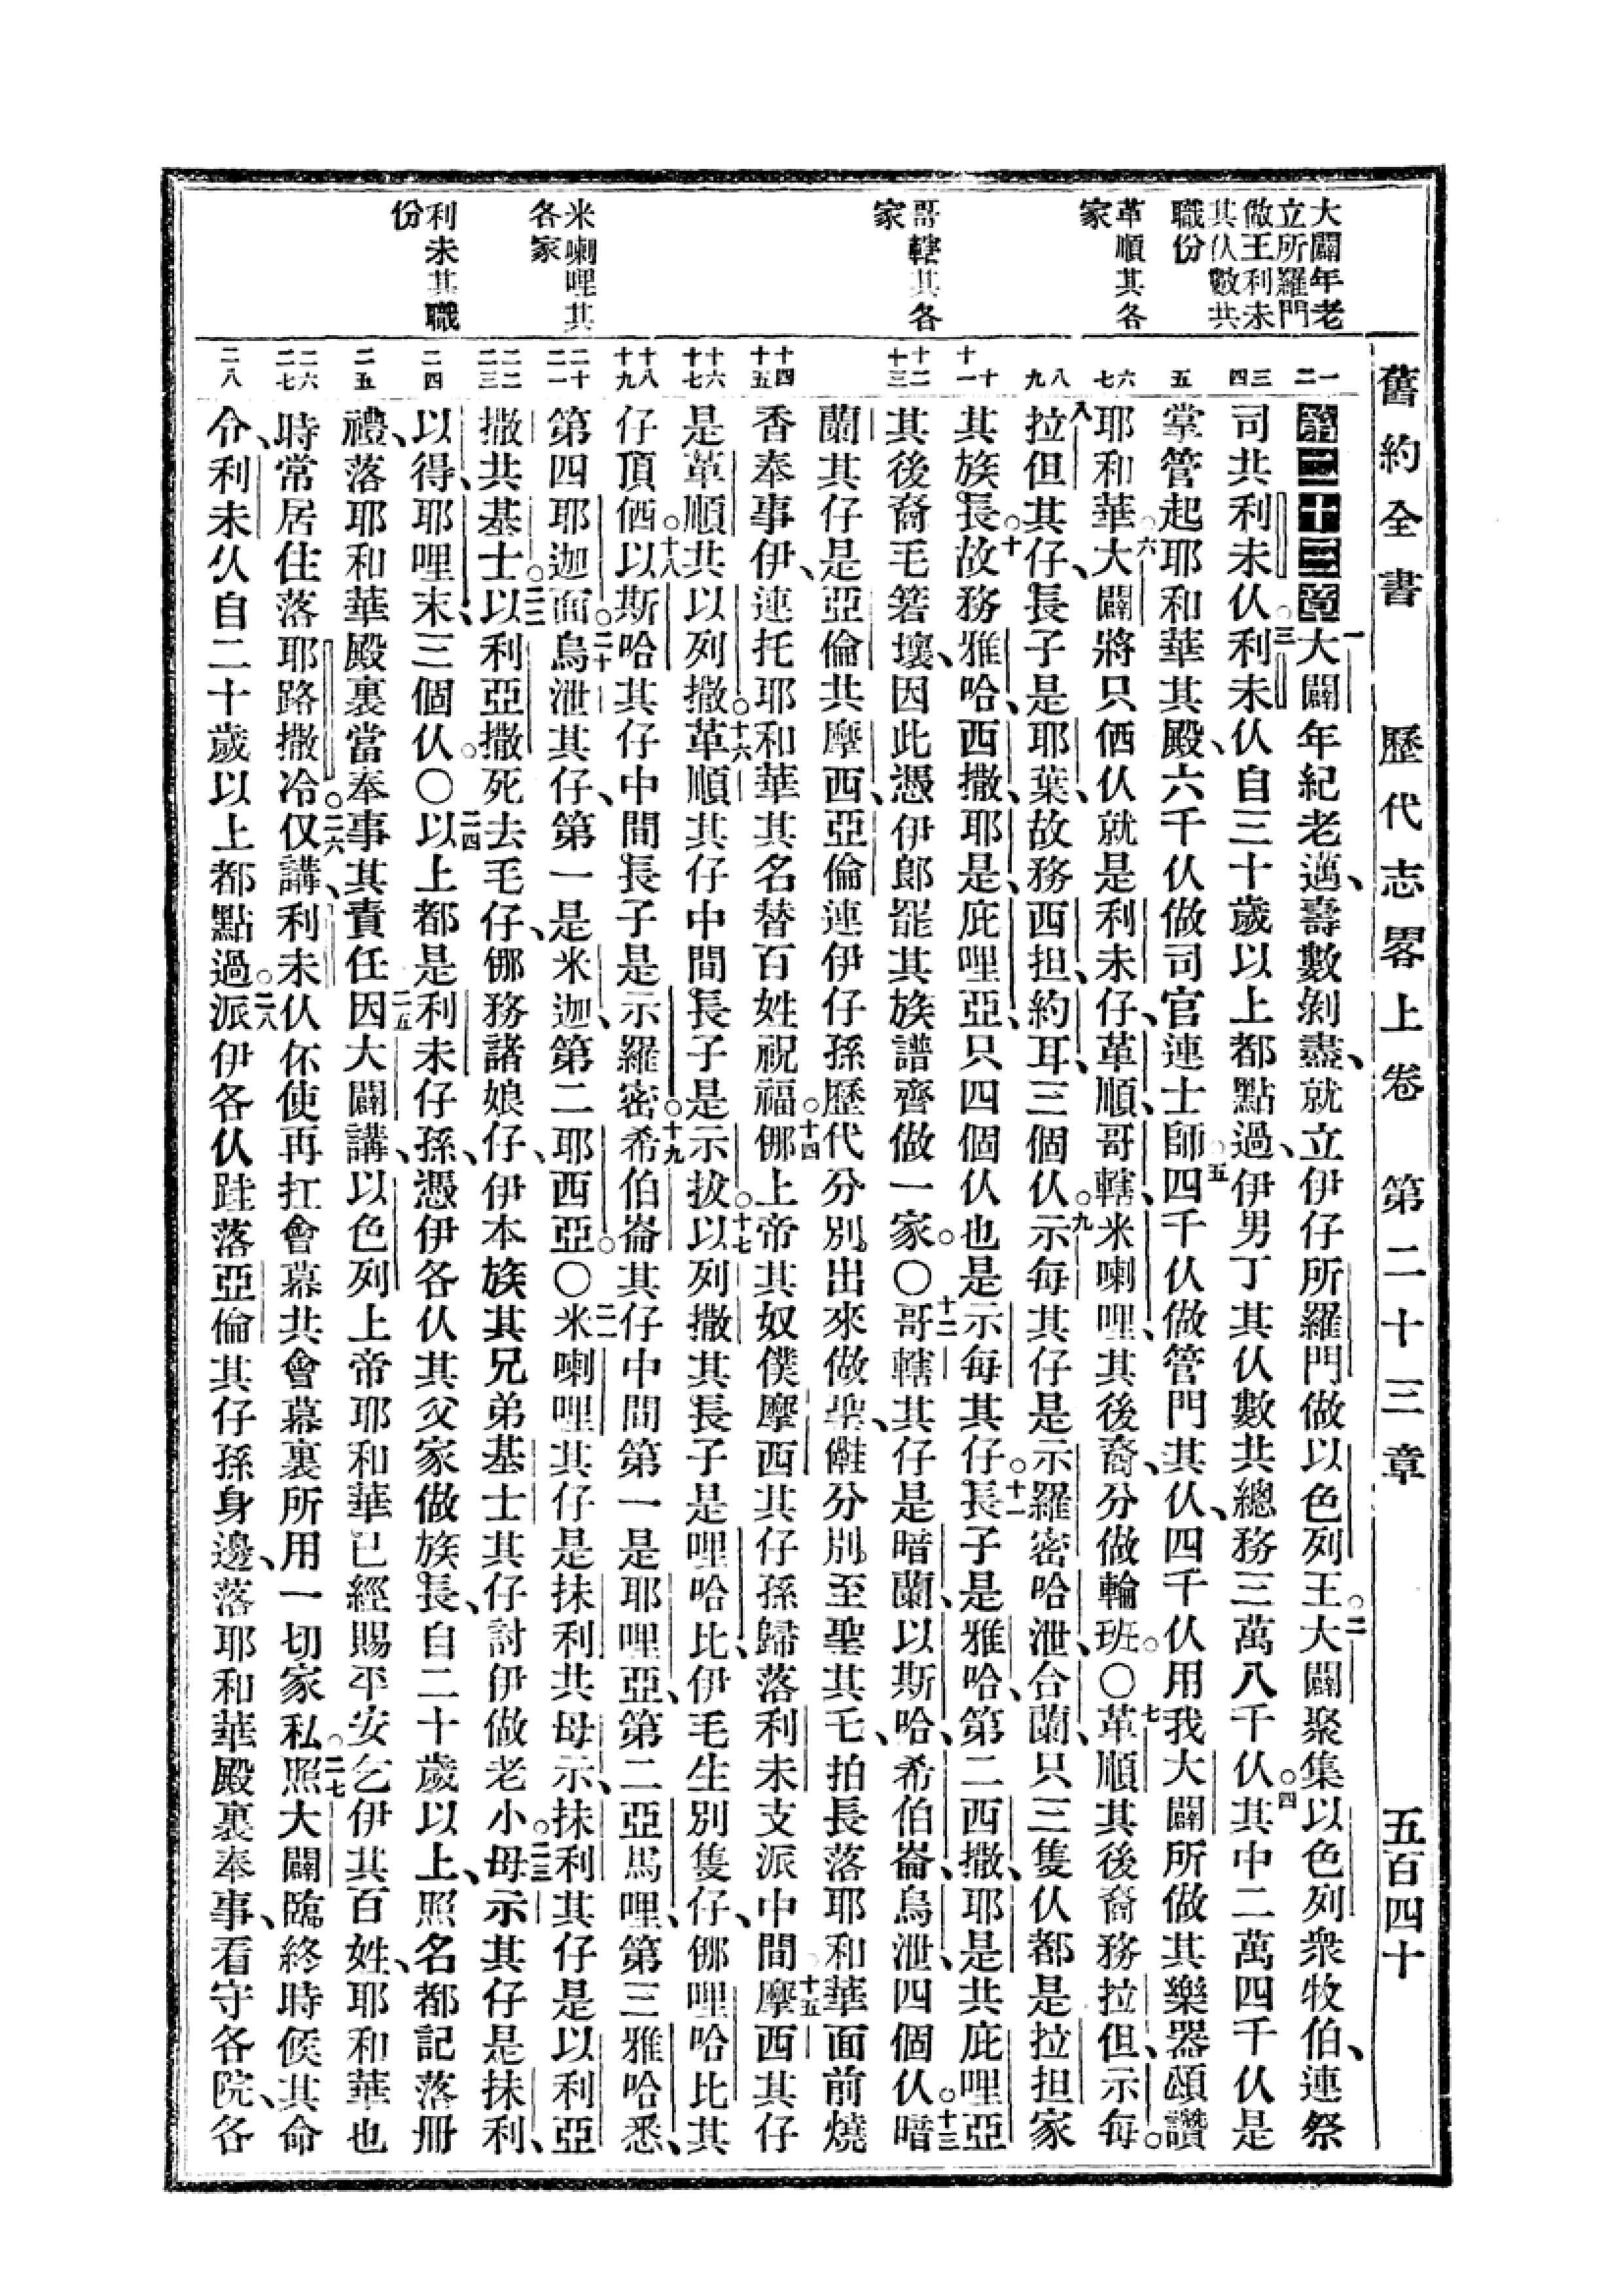 舊約全書 歷代志畧上卷 第二十三章 五百四十
大闢年老
立所羅門
做王利未
其仈數共
職份
革順其各
家
哥轄其各
家
米喇哩其
各家
利未其職
份
一 二
三 四
五
六 七
八 九
十 十一
十二 十三
十四 十五
十六 十七
十八 十九
二十 二一
二二 二三
二四
二五
二六 二七
二八
第二十三章 一大闢年紀老邁、壽數剝盡、就立伊仔所羅門做以色列王。二大闢聚集以色列衆牧伯、連祭
司共利未仈。三利未仈自三十歲以上都點過、伊男丁其仈數共總務三萬八千仈。四其中二萬四千仈是
掌管起耶和華其殿、六千仈做司官連士師。五四千仈做管門其仈、四千仈用我大闢所做其樂器頌讚
耶和華。六大闢將只個仈就是利未仔、革順、哥轄、米喇哩、其後裔、分做輪班。〇七革順其後裔務拉但、示每。
八拉但其仔、長子是耶葉、故務西担、約耳、三個仈。九示每其仔是示羅密哈泄、合蘭、只三隻仈都是拉担家
其族長。十故務雅哈、西撒、耶是、庇哩亞、只四個仈也是示每其仔。十一長子是雅哈、第二西撒、耶是共庇哩亞
其後裔毛箬壤、因此憑伊郎罷其族譜齊做一家。〇十二哥轄其仔是暗蘭、以斯哈、希伯崙、烏泄、四個仈。十三暗
蘭其仔是亞倫共摩西、亞倫連伊仔孫歷代分別出來做聖、㑲分別至聖其乇、拍長落耶和華面前燒
香奉事伊、連托耶和華其名替百姓祝福。十四㑚上帝其奴僕摩西其仔孫歸落利未支派中間。十五摩西其仔
是革順共以列撒。十六革順其仔中間長子是示拔。十七以列撒其長子是哩哈比、伊毛生別隻仔、㑚哩哈比其
仔頂価。十八以斯哈其仔中間長子是示羅密。十九希伯崙其仔中間第一是耶哩亞、第二亞馬哩、第三雅哈悉、
第四耶迦面。二十烏泄其仔、第一是米迦、第二耶西亞。〇二一米喇哩其仔是抹利共母示、抹利其仔是以利亞
撒共基士。二二以利亞撒死去毛仔、㑚務諸娘仔、伊本族其兄弟基士其仔討伊做老小。二三母示其仔是抹利、
以得、耶哩末、三個仈。〇二四以上都是利未仔孫、憑伊各仈其父家做族長、自二十歲以上、照名都記落册
禮、落耶和華殿裏當奉事其責任。二五因大闢講、以色列上帝耶和華已經賜平安乞伊其百姓、耶和華也
時常居住落耶路撒冷。二六仅講、利未仈伓使再扛會幕共會幕裏所用一切家私。二七照大闢臨終時候其命
令、利未仈自二十歲以上都點過。二八派伊各仈跬落亞倫其仔孫身邊、落耶和華殿裏奉事、看守各院、各